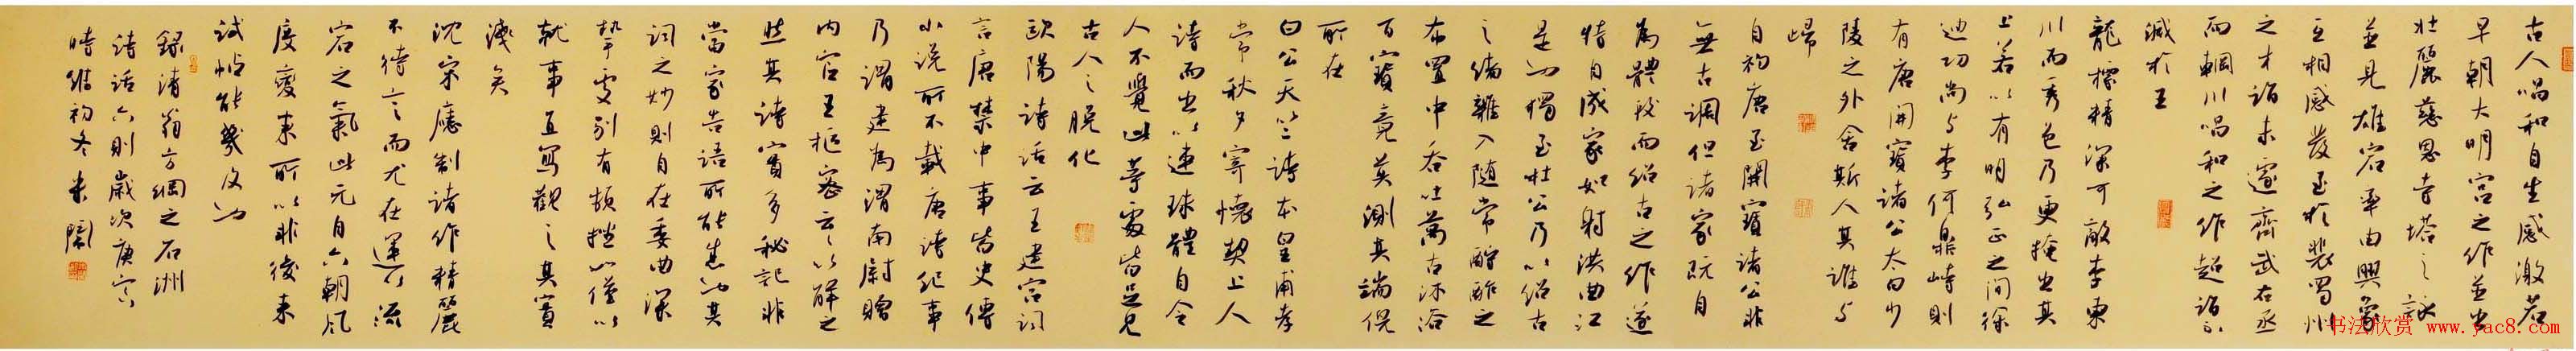 古人唱和自生感激若
早朝大明宫之作並出
壮麗慈恩寺塔之詠
並見雄宕率由興象
互相感發至於裴蜀州
之才詣未遽齊武右丞
而輞川唱和之作超詣不
減於王
龍標精深可敵李東
川而秀色乃更掩出其
上若以有明弘正之间徐
迪功尚与李何鼎峙則
有唐開寶諸公太白少
陵之外舍斯人其誰与
歸
自初唐至開寶諸公非
無古調但諸家既自
為體段而紹古之作遂
特自成家如射洪曲江
是也獨至杜公乃以紹古
之緒雜入随常酬酢之
布置中吞吐萬古沐浴
百寶竟莫測其端倪
所在
白公天竺詩本皇甫孝
常秋夕寄懷契上人
詩而出以連珠體自令
人不覺此等處皆足見
古人之脱化
歐陽詩話云王建宫词
言唐禁中事皆史傳
小説所不載唐詩纪事
乃謂建為渭南尉贈
内官王枢密云云以解之
然其詩實多秘記非
當家告語所能悉也其
词之妙則自在委曲深
挚處别有頓挫如僅以
就事直写觀之其實
淺矣
沈宋應制諸作精麗
不待言而尤在運以流
宕之氣此元自六朝风
度变来所以非後来
试帖能幾及也
録清翁方綱之石洲
诗話六則歲次庚寅
時維初冬 朱闊
书法欣赏 www.yac8.com